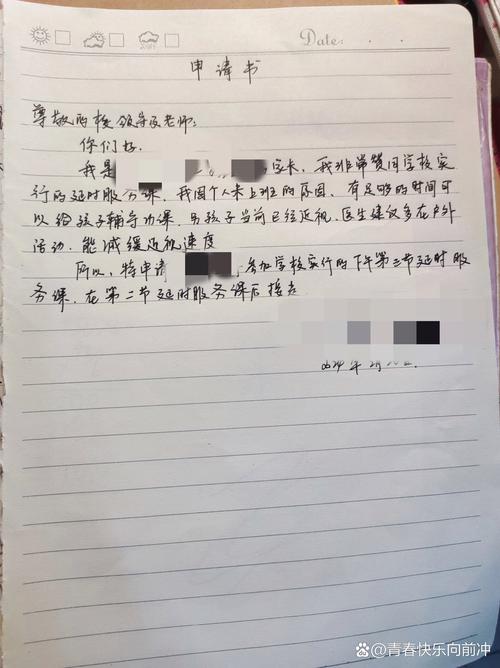 Date:
申请书
尊敬的校领导及老师:
你们好.
我是 家长, 我非常赞同学校实
行的延时服务课. 我因个人未上班的原因、有足够的时间可
以给孩子辅导功课. 另孩子当前已经近视. 医生建议多在户外
活动. 能减缓近视速度
所以, 特申请 , 参加学校实行的下午第三节延时服
务课. 在第二节延时服务课后接走
年 2月
@青春快乐向前冲